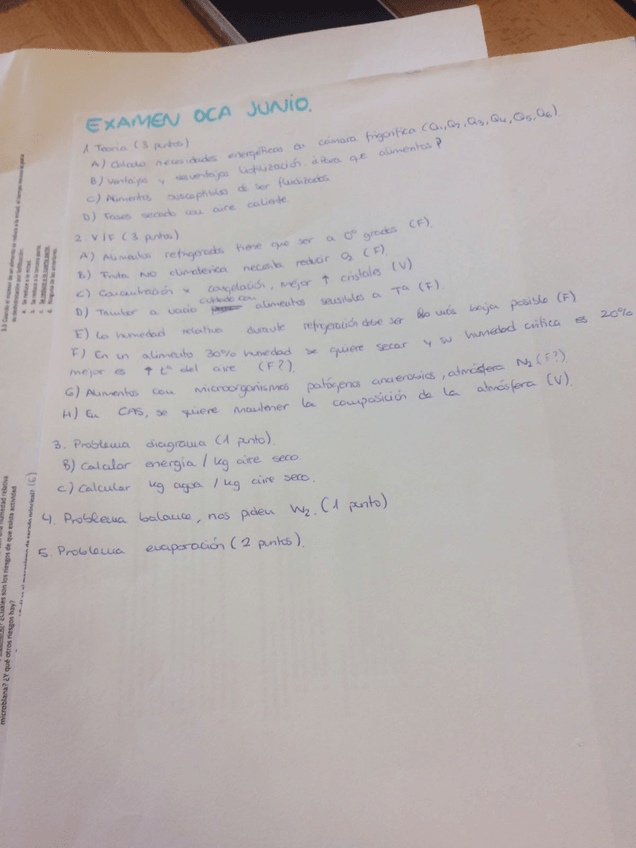 EXAMEN OCA JUNIO.
1. Teoría (3 puntos)
A) Calcula necesidades energéticas en cámara frigorífica (Q1, Q2, Q3, Q4, Q5, Q6).
B) Ventajas y desventajas liofilización ¿Para qué alimentos?
C) Alimentos susceptibles de ser fluidizados.
D) Fases secado con aire caliente.
2. V/F (3 puntos)
A) Alimentos refrigerados tiene que ser a 0º grados (F).
B) Fruta NO climatérica necesita reducir O2 (F).
C) Concentración x congelación, mejor ↑ cristales (V)
D) a vacío cuidado con alimentos sensibles a Tª (F).
E) La humedad relativa durante refrigeración debe ser lo más baja posible (F)
F) En un alimento 30% humedad se quiere secar y su humedad crítica es 20%
mejor es ↑ tº del aire (F?).
G) Alimentos con microorganismos patógenos anaerobios, atmósfera N2 (F?)
H) En CAS, se quiere mantener la composición de la atmósfera (V).
3. Problema diagrama (1 punto).
B) Calcular energía / kg aire seco.
C) Calcular kg agua / kg aire seco.
4. Problema balance, nos piden W2. (1 punto)
5. Problema evaporación (2 puntos).
microbiana? ¿Y qué otros riesgos hay?
¿Cuáles son los riesgos de que exista actividad